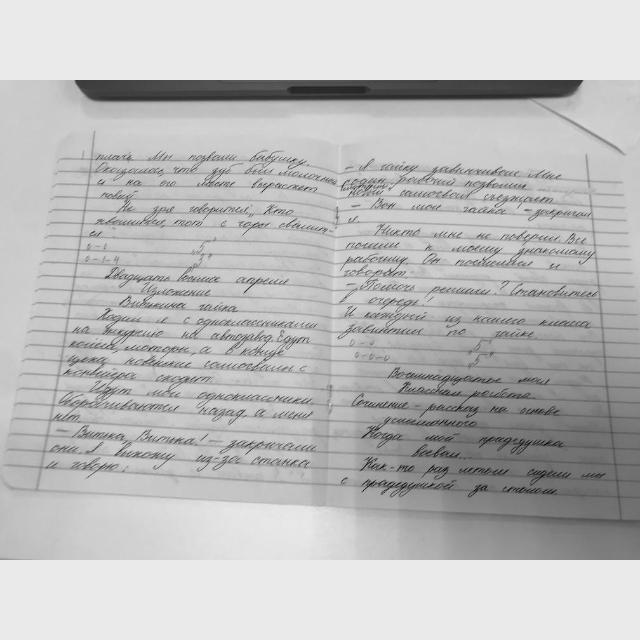 плачь. Мы позвали бабушку.
Оказалось, что зуб был молочный
и на его месте вырастет
новый.
Не зря говорится: "Кто
хвалился, тот с горы свалил-
ся".
0-0
0-1-4
Двадцать восьмое апреля
Изложение
Витькина гайка
Ходили я с одноклассниками
на экскурсию на автозавод. Едут
колёса, моторы, а в конце
цеха новенькие самосвалы с
конвейера сходят.
Идут мои одноклассники.
Оборачиваются назад, а меня
нет.
– Витька, Витька! – закричали
они. А я выхожу из-за станка
и говорю:
– Я гайку завинчивал. Мне
рабочий позволил.
самосвал съезжает
– Вон моя гайка! – закричал
я.
Никто мне не поверил. Все
пошли к моему знакомому
рабочему. Он посмеялся и
говорит:
– Помочь решили? Становитесь
в очередь!
И каждый из нашего класса
завинтил по гайке.
0-0
0-0-0
5
5
Восемнадцатое мая
Классная работа.
Сочинение – рассказ на основе
услышанного
Когда мой прадедушка
воевал.
Как-то раз летом сидели мы
с прадедушкой за столом